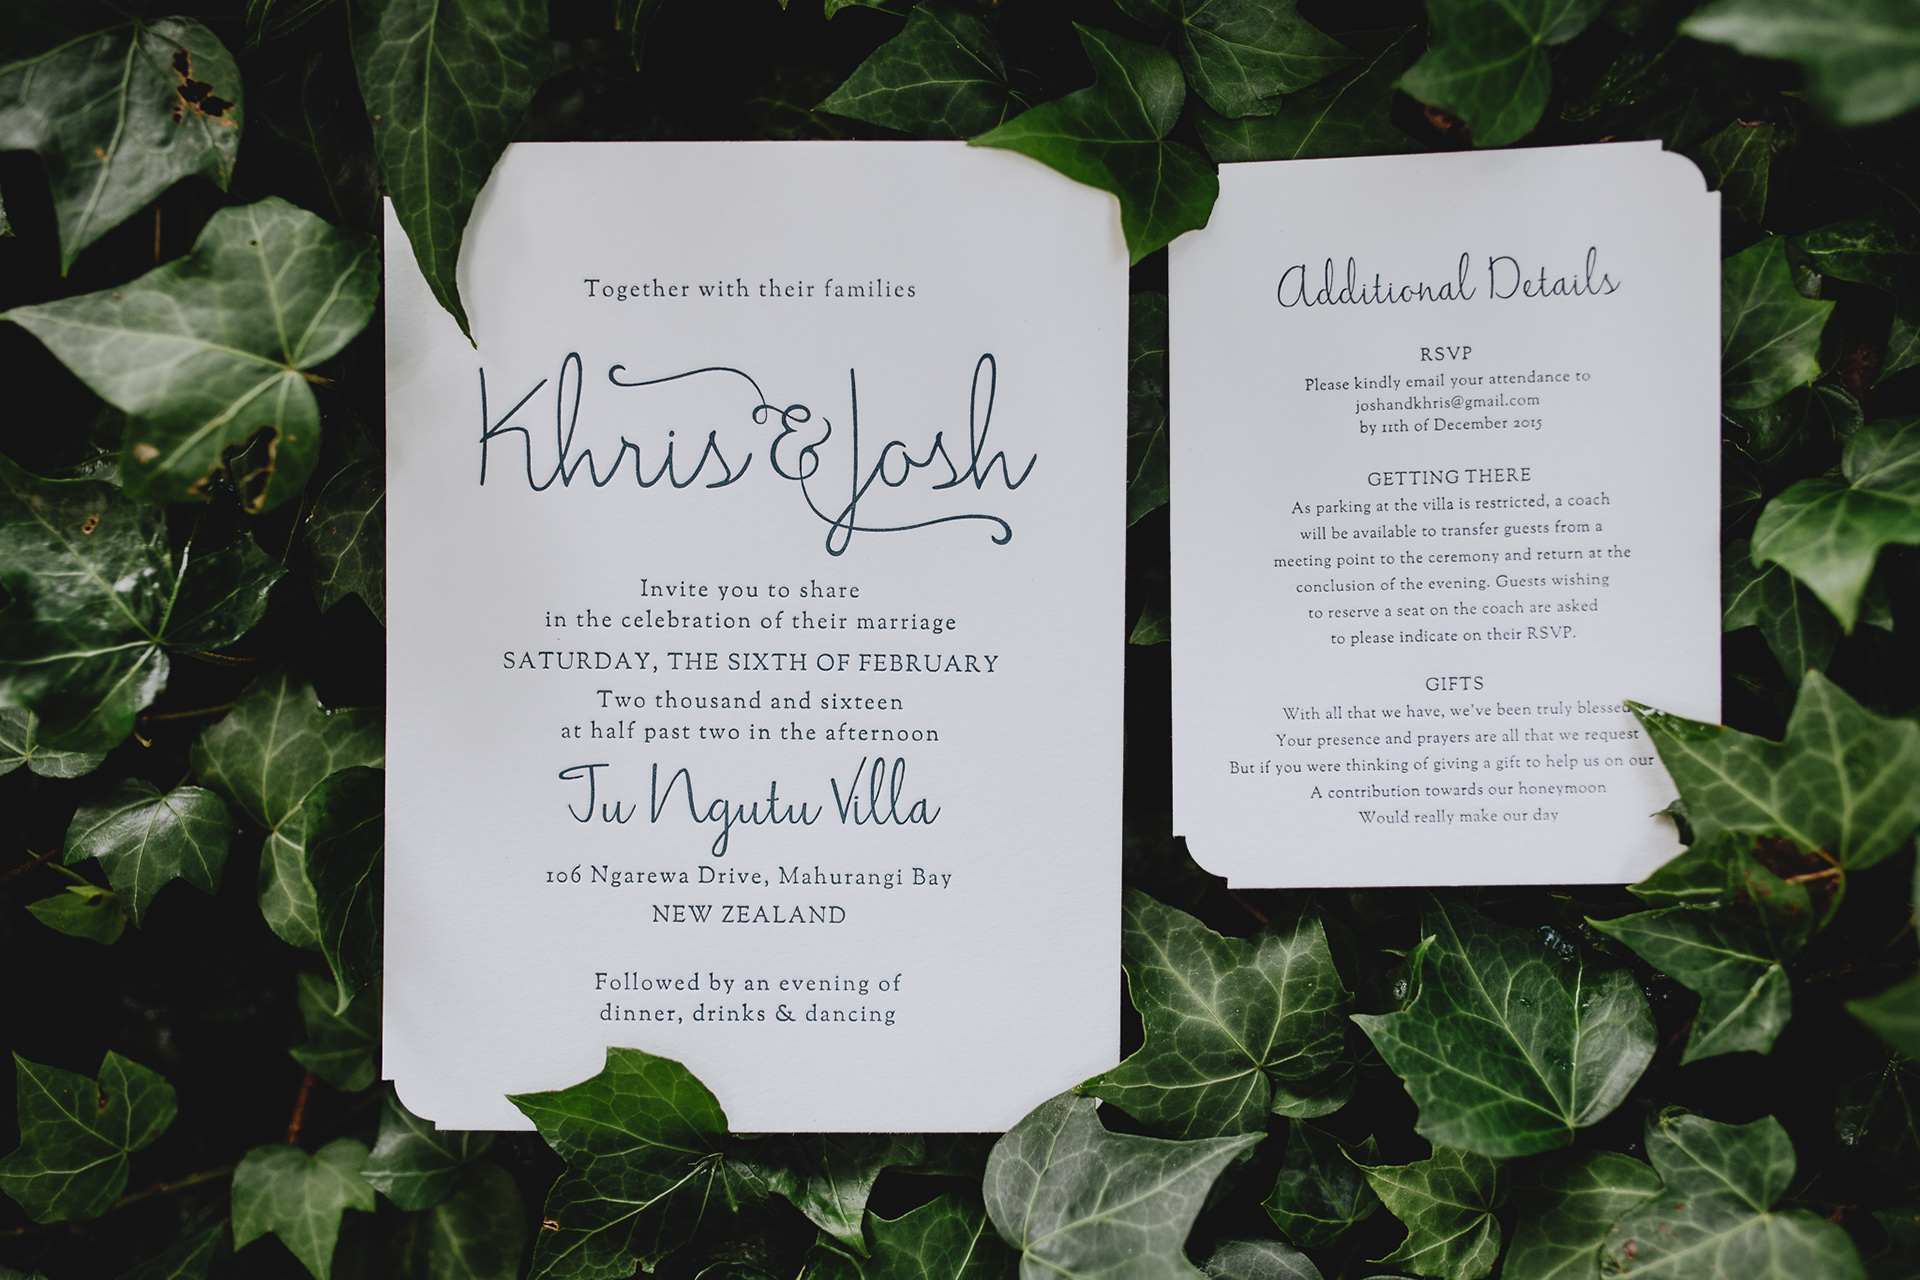 Together with their families
Khris & Josh
Invite you to share
in the celebration of their marriage
SATURDAY, THE SIXTH OF FEBRUARY
Two thousand and sixteen
at half past two in the afternoon
Tu Ngutu Villa
106 Ngarewa Drive, Mahurangi Bay
NEW ZEALAND
Followed by an evening of
dinner, drinks & dancing
Additional Details
RSVP
Please kindly email your attendance to
joshandkhris@gmail.com
by 11th of December 2015
GETTING THERE
As parking at the villa is restricted, a coach
will be available to transfer guests from a
meeting point to the ceremony and return at the
conclusion of the evening. Guests wishing
to reserve a seat on the coach are asked
to please indicate on their RSVP.
GIFTS
With all that we have, we've been truly blessed
Your presence and prayers are all that we request
But if you were thinking of giving a gift to help us on our
A contribution towards our honeymoon
Would really make our day